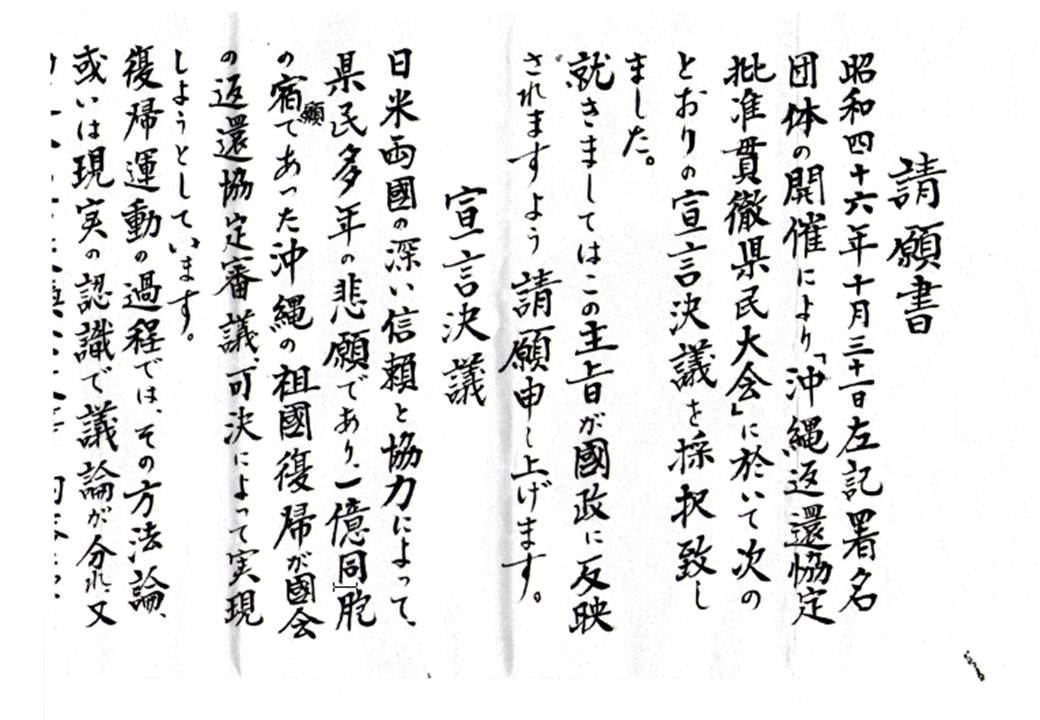 請願書
昭和四十六年十月三十一日左記署名
団体の開催により「沖縄返還協定
批准貫徹県民大会」に於いて次の
とおりの宣言決議を採択致し
ました。
就きましてはこの主旨が國政に反映
されますよう請願申し上げます。
宣言決議
日米両國の深い信頼と協力によって、
県民多年の悲願であり、一億同胞
の宿願であった沖縄の祖國復帰が國会
の返還協定審議、可決によって実現
しようとしています。
復帰運動の過程では、その方法論、
或いは現実の認識で議論が分れ、又